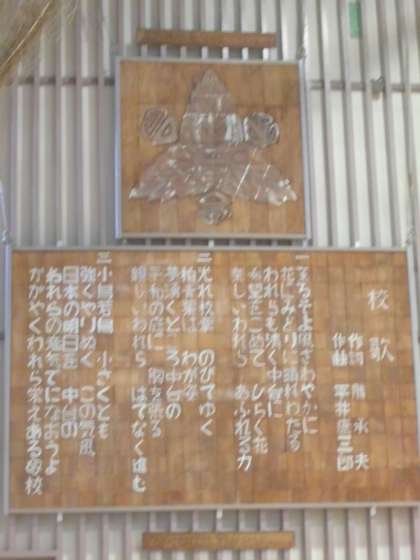 校歌
作詞 水夫
作曲 平井康三郎
一 そよ風さわやかに
花にみどりに晴れわたる
われらも清く中台に
希望をこめて ひらく花
楽しいわれら あふれる力
二 光れ校章 のびてゆく
柏は わかば
夢湧くところ 中台の
平和の庭に 胸を張る
嬉しいわれら はてなく進む
三 小鳥若鳩 小さくとも
強くやりぬく この気風
日本の明日を 中台の
われらの意気でになおうよ
かがやくわれら 栄えある母校